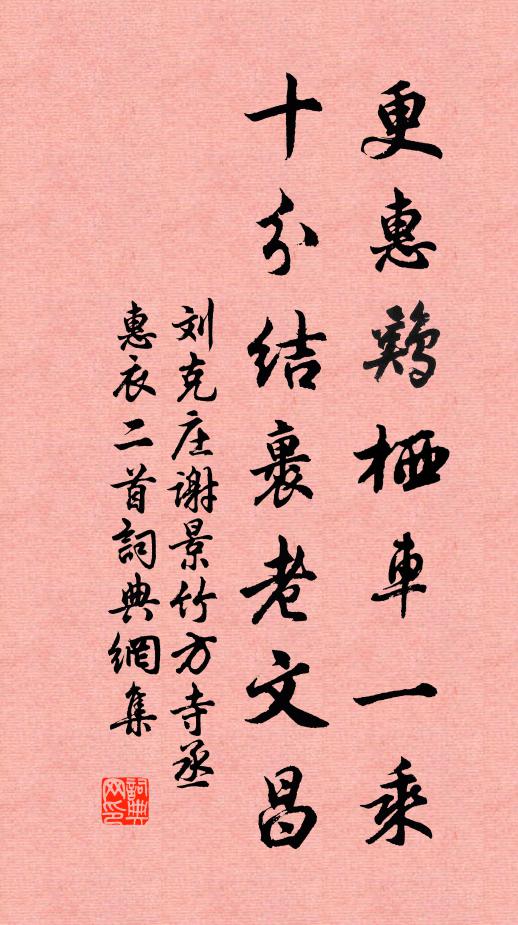 更惠鷄栖車一乘
十分結裹老文昌
刘克庄谢景竹方寺丞
惠衣二首詞典網集
詞典
网印